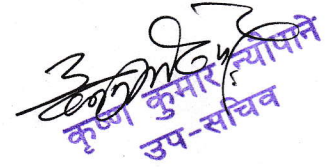 कृष्ण कुमार न्यौपाने
उप-सचिव